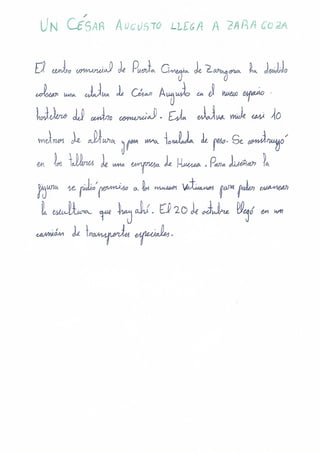 UN CÉSAR AUGUSTO LLEGA A ZARAGOZA
El centro comercial de Puerta Cinegia de Zaragoza ha decidido
colocar una estatua de César Augusto en el nuevo espacio
hostelero del centro comercial. Esta estatua mide casi 10
metros de altura y pesa una tonelada de peso. Se construyó
en los talleres de una empresa de Huesca. Para diseñar la
figura se pidió permiso a los museos Vaticanos para poder escanear
la escultura que hay ahí. El 20 de octubre llegó en un
camión de transportes especiales.